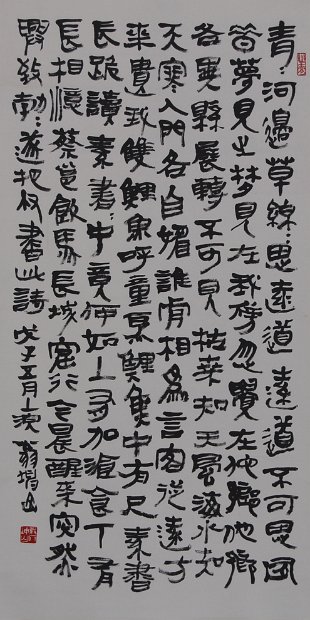 青:河邊草綿:思遠道遠道不可思夙
昔夢見之夢見在我傍忽覺在他鄉他鄉
各異縣展轉不可見枯桑知天風海水知
天寒入門各自媚誰肯相為言客從遠方
來遺我雙鯉魚呼童烹鯉魚中有尺素書
長跪讀素書:中竟何如上有加餐食下有
長相憶 蔡邕飲馬長城窟行今晨醒來突然
興致勃:遂把 書此詩 戊子五月上浣 翁